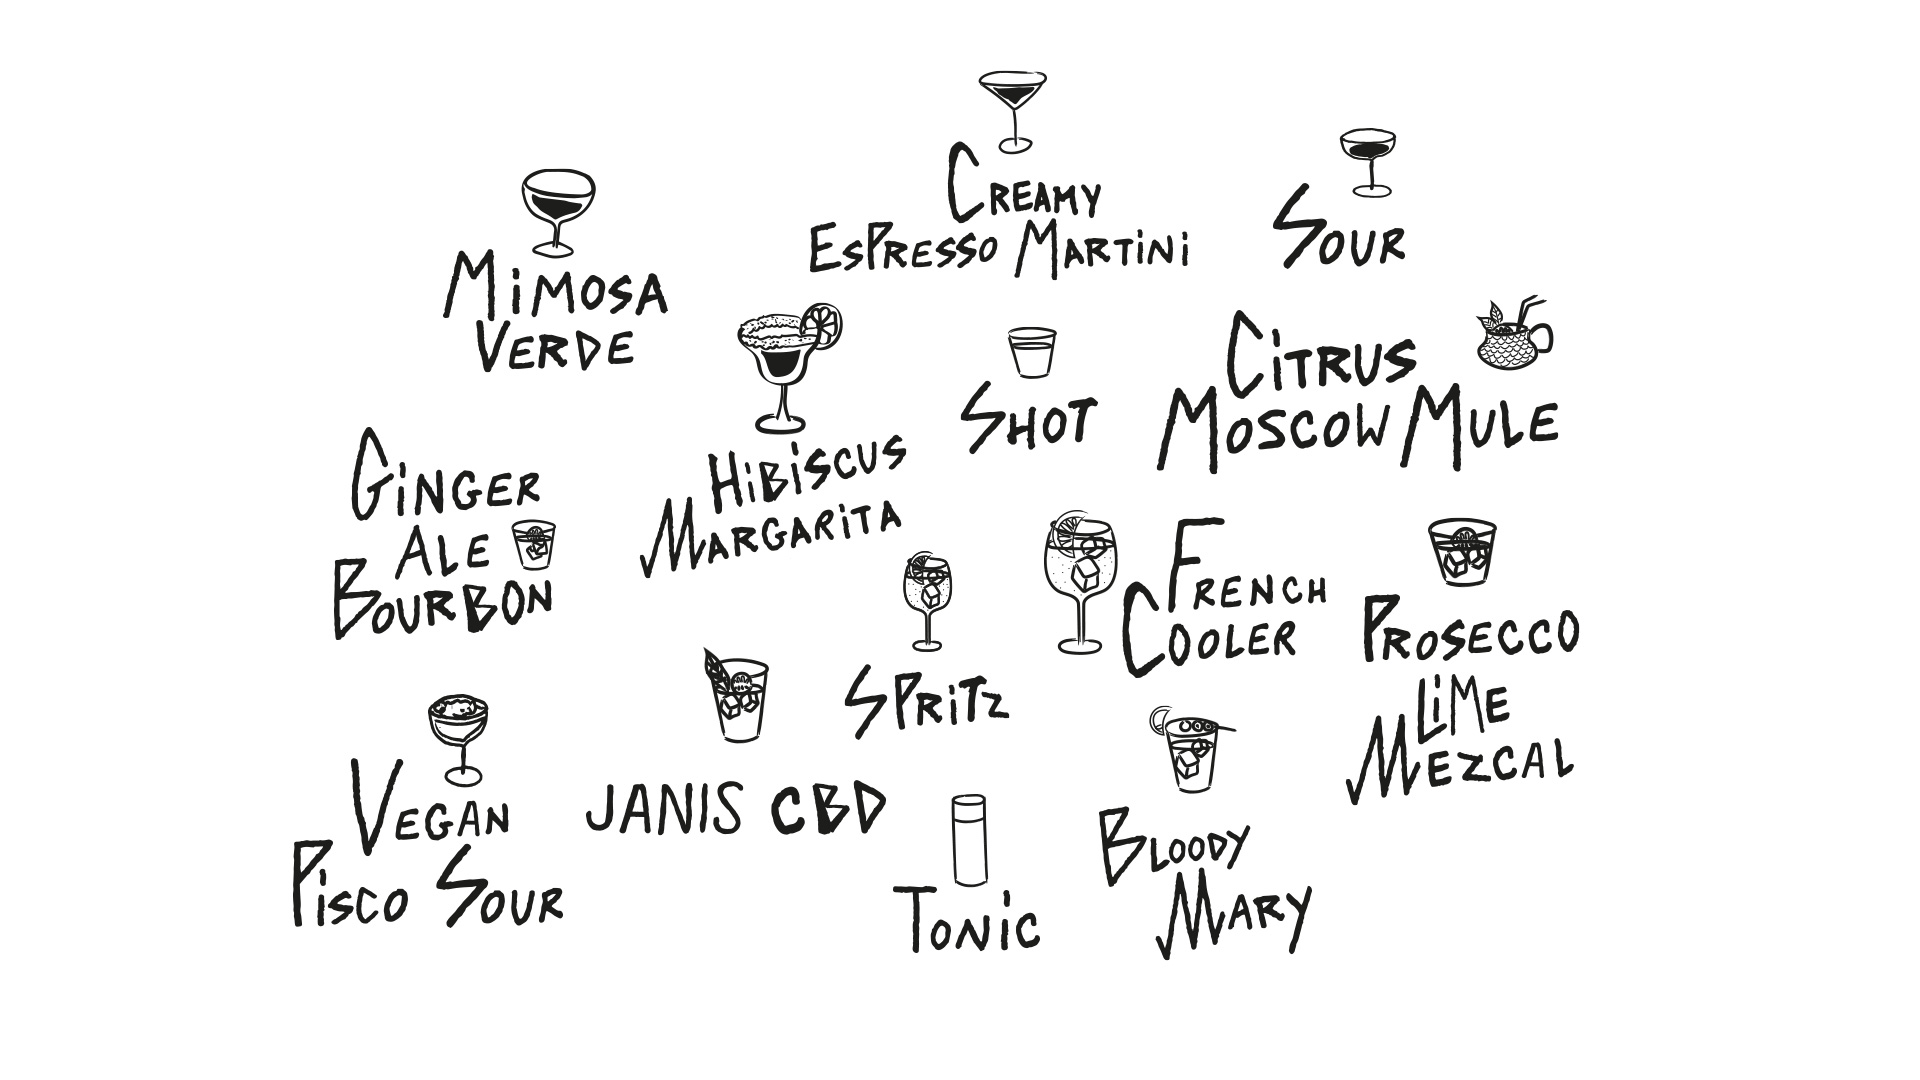 Creamy
Espresso Martini
Sour
Mimosa
Verde
Hibiscus
Margarita
Shot
Citrus
Moscow Mule
Ginger
Ale
Bourbon
Spritz
French
Cooler
Prosecco
Lime
Mezcal
Vegan
Pisco Sour
JANIS CBD
Tonic
Bloody
Mary